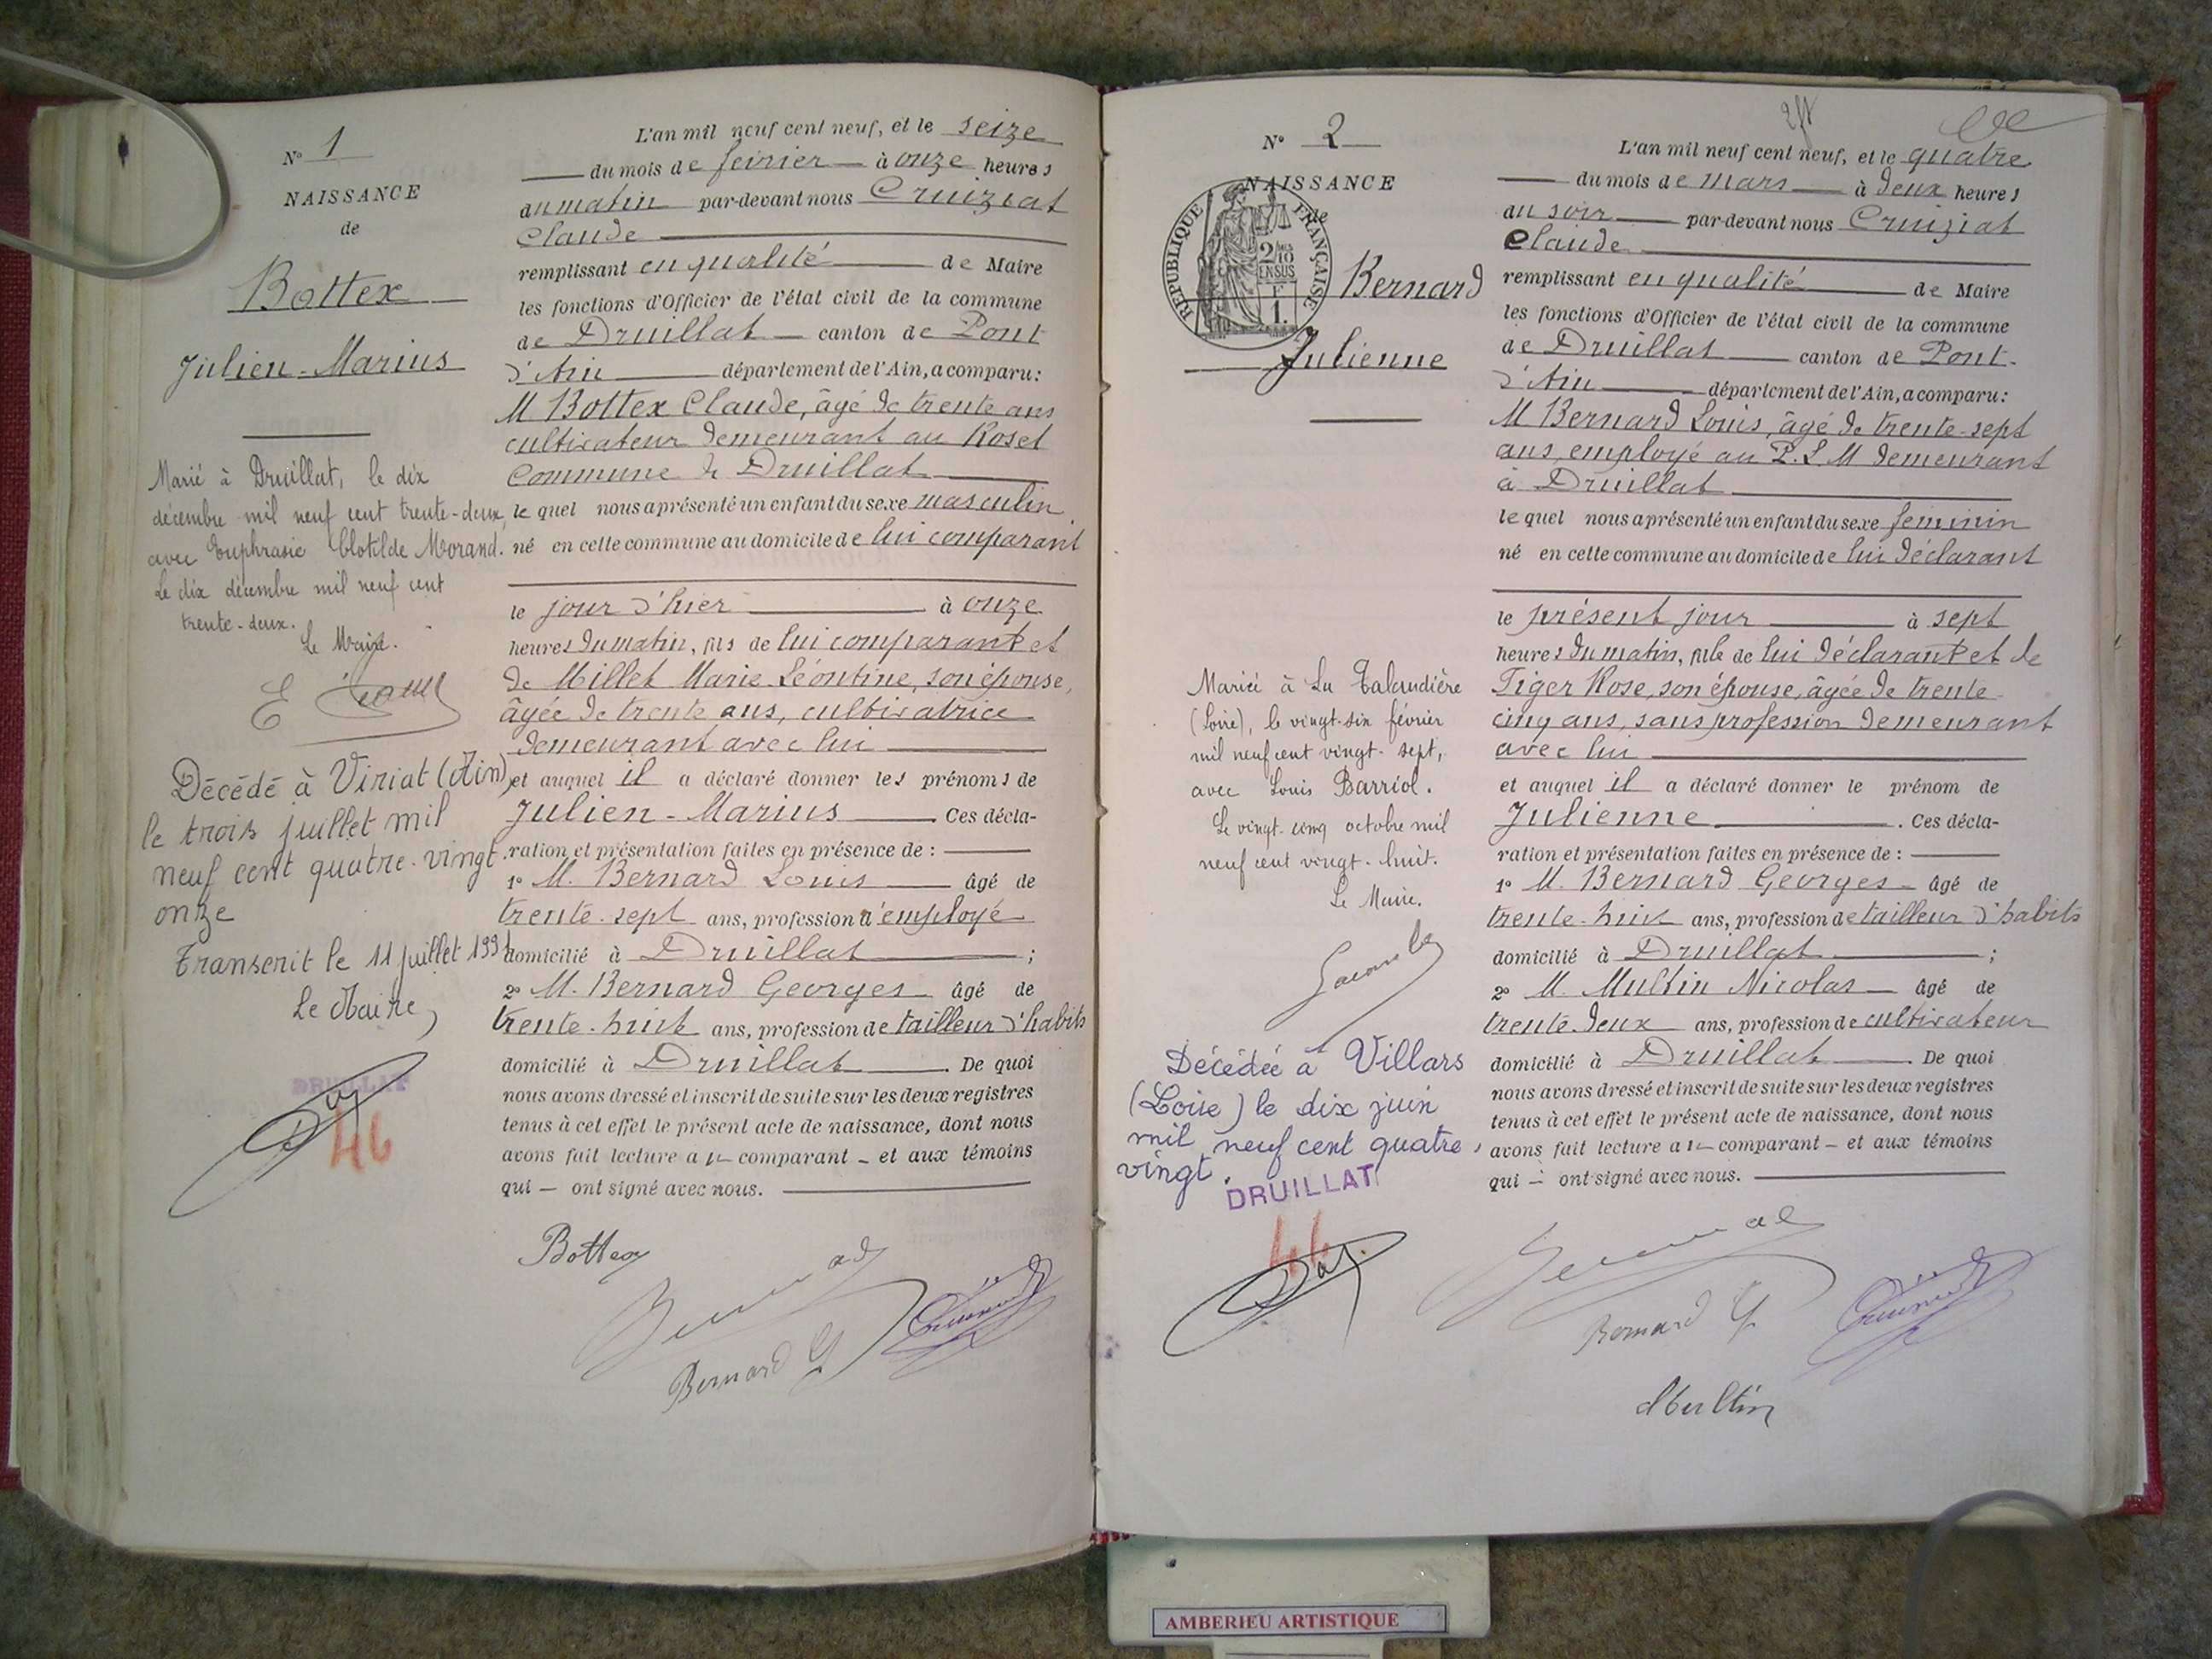 N° 1
NAISSANCE
de
Bottex
Julien-Marius
Marié à Druillat, le dix
décembre mil neuf cent trente-deux,
avec Euphrasie Clotilde Morand.
Le dix décembre mil neuf cent
trente-deux.
Le Maire.
Décédé à Viriat (Ain)
le trois juillet mil
neuf cent quatre-vingt
onze
Transcrit le 11 juillet 1991
Le Maire,
DRUILLAT
46
L'an mil neuf cent neuf, et le seize
du mois de février à onze heures
du matin par-devant nous Cruiziat
Claude
remplissant en qualité de Maire
les fonctions d'Officier de l'état civil de la commune
de Druillat canton de Pont
d'Ain département de l'Ain, a comparu:
M Bottex Claude, âgé de trente ans
cultivateur demeurant au Roset
Commune de Druillat
le quel nous a présenté un enfant du sexe masculin
né en cette commune au domicile de lui comparant
le jour d'hier à onze
heures du matin, fils de lui comparant et
de Millet Marie-Léontine, son épouse,
âgée de trente ans, cultivatrice
demeurant avec lui
et auquel il a déclaré donner les prénoms de
Julien-Marius. Ces décla-
ration et présentation faites en présence de :
1° M. Bernard Louis âgé de
trente-sept ans, profession d'employé
domicilié à Druillat ;
2° M. Bernard Georges âgé de
trente-huit ans, profession de tailleur d'habits
domicilié à Druillat. De quoi
nous avons dressé et inscrit de suite sur les deux registres
tenus à cet effet le présent acte de naissance, dont nous
avons fait lecture a u comparant et aux témoins
qui ont signé avec nous.
Bottex
Bernard
Bernard G
N° 2
NAISSANCE
de
REPUBLIQUE FRANÇAISE
2/10 MES
EN SUS
1 F.
Bernard
Julienne
Mariée à La Talaudière
(Loire), le vingt-six février
mil neuf cent vingt-sept,
avec Louis Barriol.
Le vingt-cinq octobre mil
neuf cent vingt-huit.
Le Maire.
Décédée à Villars
(Loire) le dix juin
mil neuf cent quatre
vingt.
DRUILLAT
L'an mil neuf cent neuf, et le quatre
du mois de mars à deux heures
du soir par-devant nous Cruiziat
Claude
remplissant en qualité de Maire
les fonctions d'Officier de l'état civil de la commune
de Druillat canton de Pont-
d'Ain département de l'Ain, a comparu:
M Bernard Louis, âgé de trente-sept
ans, employé au P.L.M demeurant
à Druillat
le quel nous a présenté un enfant du sexe feminin
né en cette commune au domicile de lui déclarant
le présent jour à sept
heures du matin, fille de lui déclarant et de
Tiger Rose, son épouse, âgée de trente-
cinq ans, sans profession demeurant
avec lui
et auquel il a déclaré donner le prénom de
Julienne. Ces décla-
ration et présentation faites en présence de :
1° M. Bernard Georges âgé de
trente-huit ans, profession de tailleur d'habits
domicilié à Druillat ;
2° M. Multin Nicolas âgé de
trente-deux ans, profession de cultivateur
domicilié à Druillat. De quoi
nous avons dressé et inscrit de suite sur les deux registres
tenus à cet effet le présent acte de naissance, dont nous
avons fait lecture a u comparant et aux témoins
qui ont signé avec nous.
Bernard G
Multin
AMBERIEU ARTISTIQUE